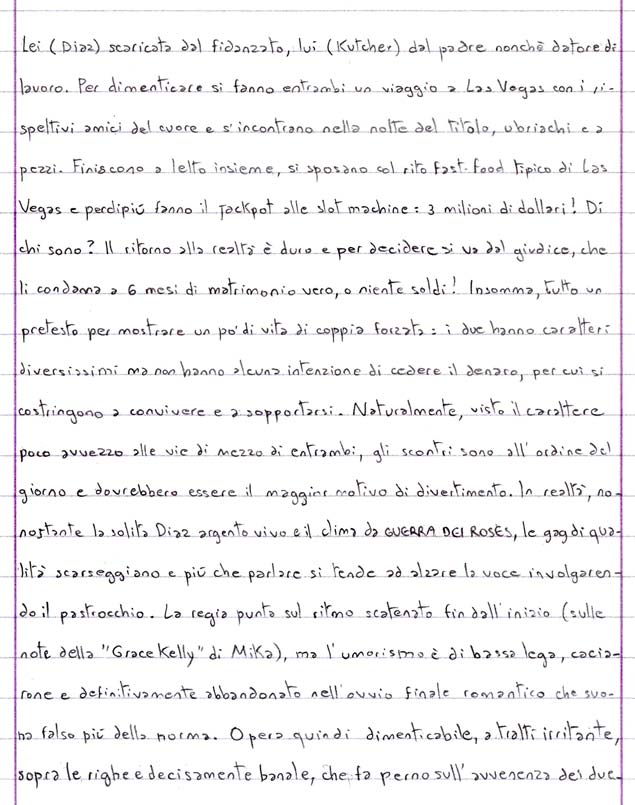 Lei (Diaz) scaricata dal fidanzato, lui (Kutcher) dal padre nonchè datore di
lavoro. Per dimenticare si fanno entrambi un viaggio a Las Vegas con i ri-
spettivi amici del cuore e s'incontrano nella notte del titolo, ubriachi e a
pezzi. Finiscono a letto insieme, si sposano col rito fast-food tipico di Las
Vegas e perdipiù fanno il Jackpot alle slot machine: 3 milioni di dollari! Di
chi sono? Il ritorno alla realtà è duro e per decidere si va dal giudice, che
li condanna a 6 mesi di matrimonio vero, o niente soldi! Insomma, tutto un
pretesto per mostrare un po' di vita di coppia forzata: i due hanno caratteri
diversissimi ma non hanno alcuna intenzione di cedere il denaro, per cui si
costringono a convivere e a sopportarsi. Naturalmente, visto il carattere
poco avvezzo alle vie di mezzo di entrambi, gli scontri sono all'ordine del
giorno e dovrebbero essere il maggior motivo di divertimento. In realtà, no-
nostante la solita Diaz argento vivo e il clima da GUERRA DEI ROSES, le gag di qua-
lità scarseggiano e più che parlare si tende ad alzare la voce involgaren-
do il pastrocchio. La regia punta sul ritmo scatenato fin dall'inizio (sulle
note della "Grace Kelly" di Mika), ma l'umorismo è di bassa lega, cacia-
rone e definitivamente abbandonato nell'ovvio finale romantico che suo-
na falso più della norma. Opera quindi dimenticabile, a tratti irritante,
sopra le righe e decisamente banale, che fa perno sull'avvenenza dei due